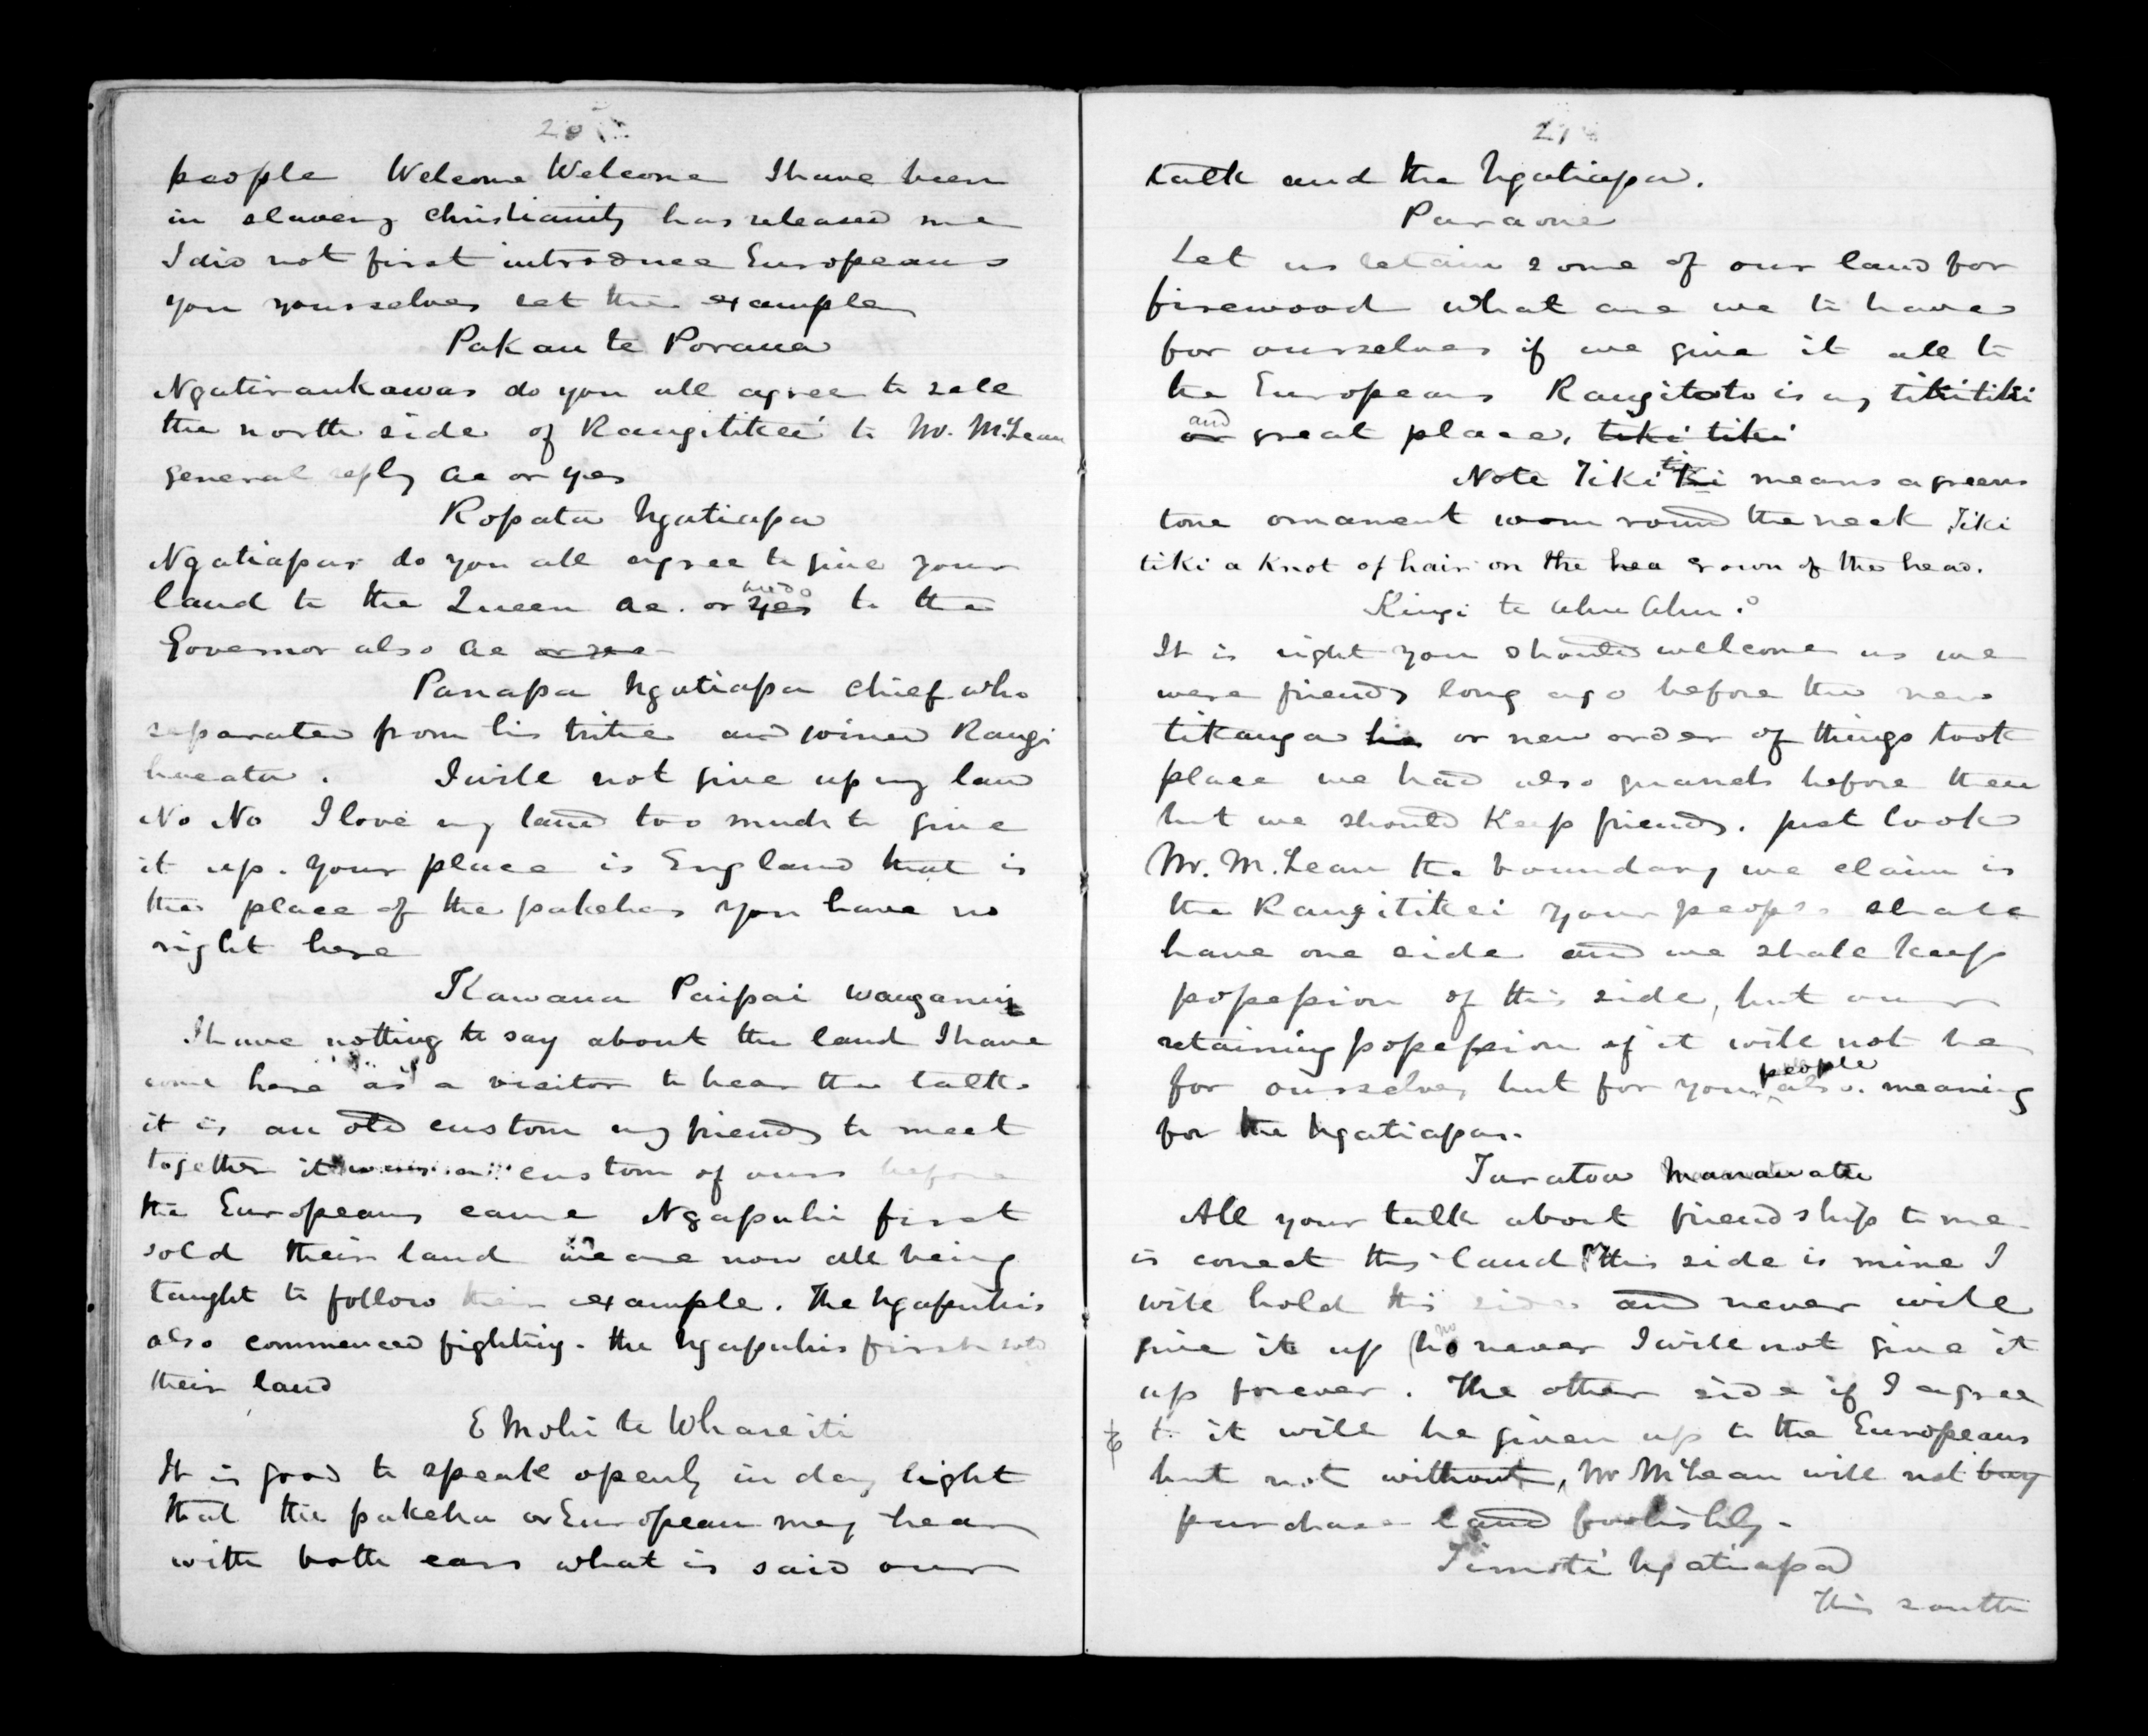 20
people Welcome Welcome I have been
in slavery Christianity has released me
I did not first introduce Europeans
you yourselves set the example
Pakau te Poraua
Ngatiraukawas do you all agree to sell
the north side of Rangitikei to Mr. McLean
general reply ae or yes
Ropata Ngatiapa
Ngatiapas do you all agree to give your
land to the Queen ae. or yes to the
Governor also ae or yes
Panapa Ngatiapa chief who
separated from his tribe and joined Rangi
haeata. I will not give up my land
No No I love my land too much to give
it up. Your place is England that is
the place of the pakehas you have no
right here
Kawana Paipai Wanganui
I have nothing to say about the land I have
come here as a visitor to hear the talk.
it is an old custom my friends to meet
together it was a custom of ours before
the Europeans came Ngapuhi first
sold their land we are now all being
taught to follow their example. The Ngapuhis
also commenced fighting. the Ngapuhis first sold
their land
E Mohi te Whareiti
It is good to speak openly in day light
that the pakeha or European may hear
with both ears what is said our
21
talk and the Ngatiapa.
Paraone
Let us retain some of our land for
firewood what are we to have
for ourselves if we give it all to
the Europeans Rangitoto is my tikitiki
and
or great place, tiki tiki
Note Tikitiki means a green
tone ornament worn round the neck Tiki
tiki a knot of hair on the hea crown of the head.
Kingi te ahu ahu.
It is right you should welcome us we
were friends long ago before the new
tikanga has or new order of things took
place we had also quarrels before then
but we should keep friends. just look
Mr. McLean the boundary we claim is
the Rangitikei your people shall
have one side and we shall keep
possession of this side, but our
retaining possession of it will not be
for ourselves but for your people also. meaning
for the Ngatiapas.
Taratoa Manawatu
All your talk about friendship to me
is correct this land on this side is mine I
will hold this side and never will
give it up no never I will not give it
up forever. The other side if I agree
to it will be given up to the Europeans
but not without, Mr McLean will not buy
purchase land foolishly.
Timoti Ngatiapa
This south